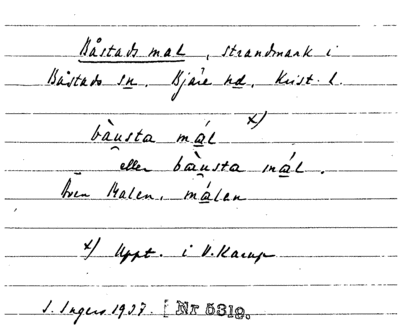 Båstads mal, strandmark i
Båstads sn. Bjäre hd. Krist. l.
bàusta mál x)
eller bàusta mál.
Även Malen, málen
x) Uppt. i V. Karup
I. Ingers 1937. [Nr 5319.